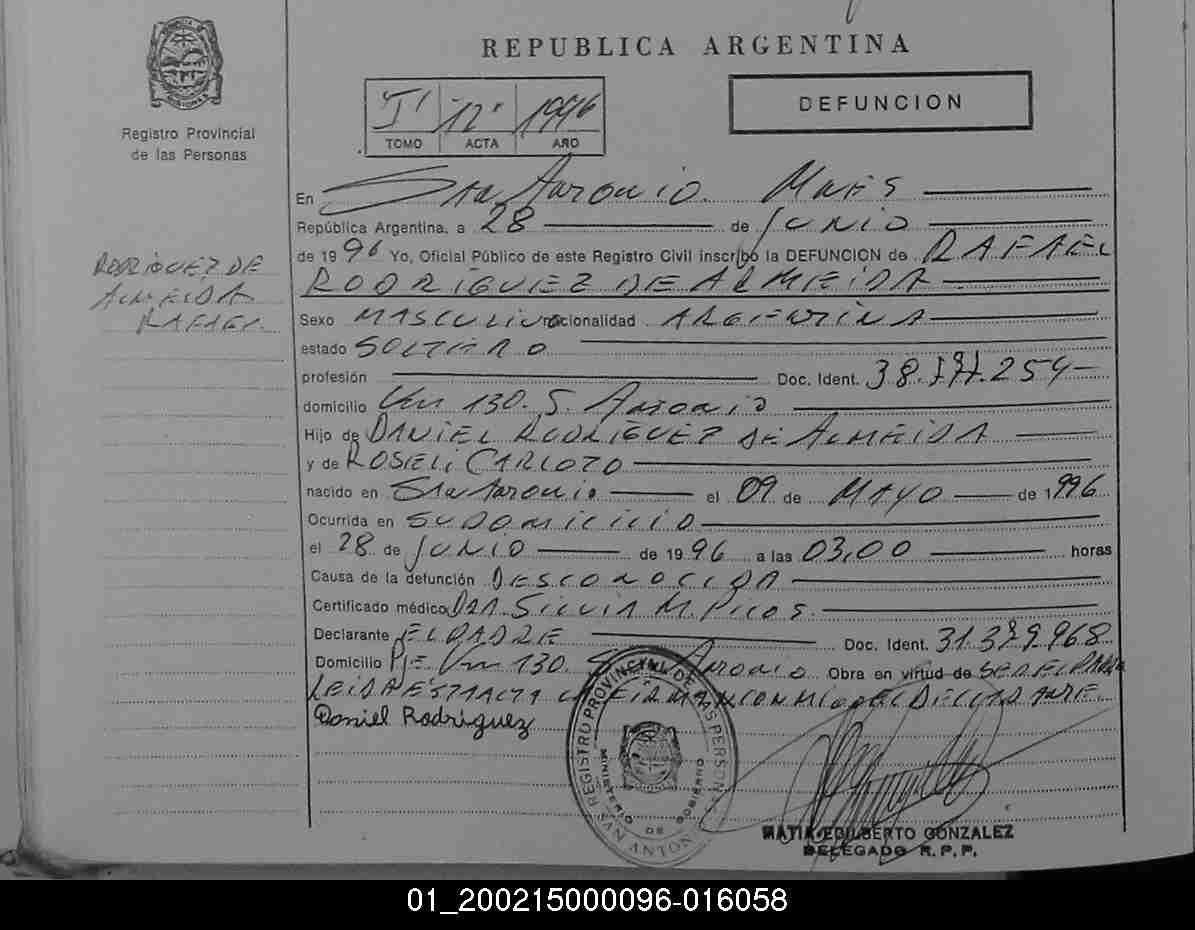 REPUBLICA ARGENTINA
Registro Provincial
de las Personas
Iº 12º 1996
TOMO ACTA AÑO
DEFUNCION
En Sta Antonio Mnes
República Argentina, a 28 de Junio
de 1996 Yo, Oficial Público de este Registro Civil inscribo la DEFUNCION de RAFAEL
RODRIGUEZ DE ALMEIDA
RODRIGUEZ DE
ALMEIDA
RAFAEL.
Sexo MASCULINO nacionalidad ARGENTINA
estado SOLTERO
profesión Doc. Ident. 38. .254
domicilio Km 130. S. Antonio
Hijo de DANIEL RODRIGUEZ DE ALMEIDA
y de ROSELI CARLOTO
nacido en Sta Antonio el 09 de MAYO de 1996
Ocurrida en SU DOMICILIO
el 28 de JUNIO de 1996 a las 03,00 horas
Causa de la defunción DESCONOCIDA
Certificado médico DRA. SILVIA M. PICOS.
Declarante EL PADRE Doc. Ident. 31.379.968
Domicilio Pje. Km 130. S. Antonio Obra en virtud de SER EL PADRE
LEIDA ESTA ACTA LA FIRMAN CONMIGO EL DECLARANTE
Daniel Rodriguez
REGISTRO PROVINCIAL DE LAS PERSONAS
MINISTERIO DE GOBIERNO
SAN ANTONIO
MATIA EDILBERTO GONZALEZ
DELEGADO R.P.P.
01_200215000096-016058